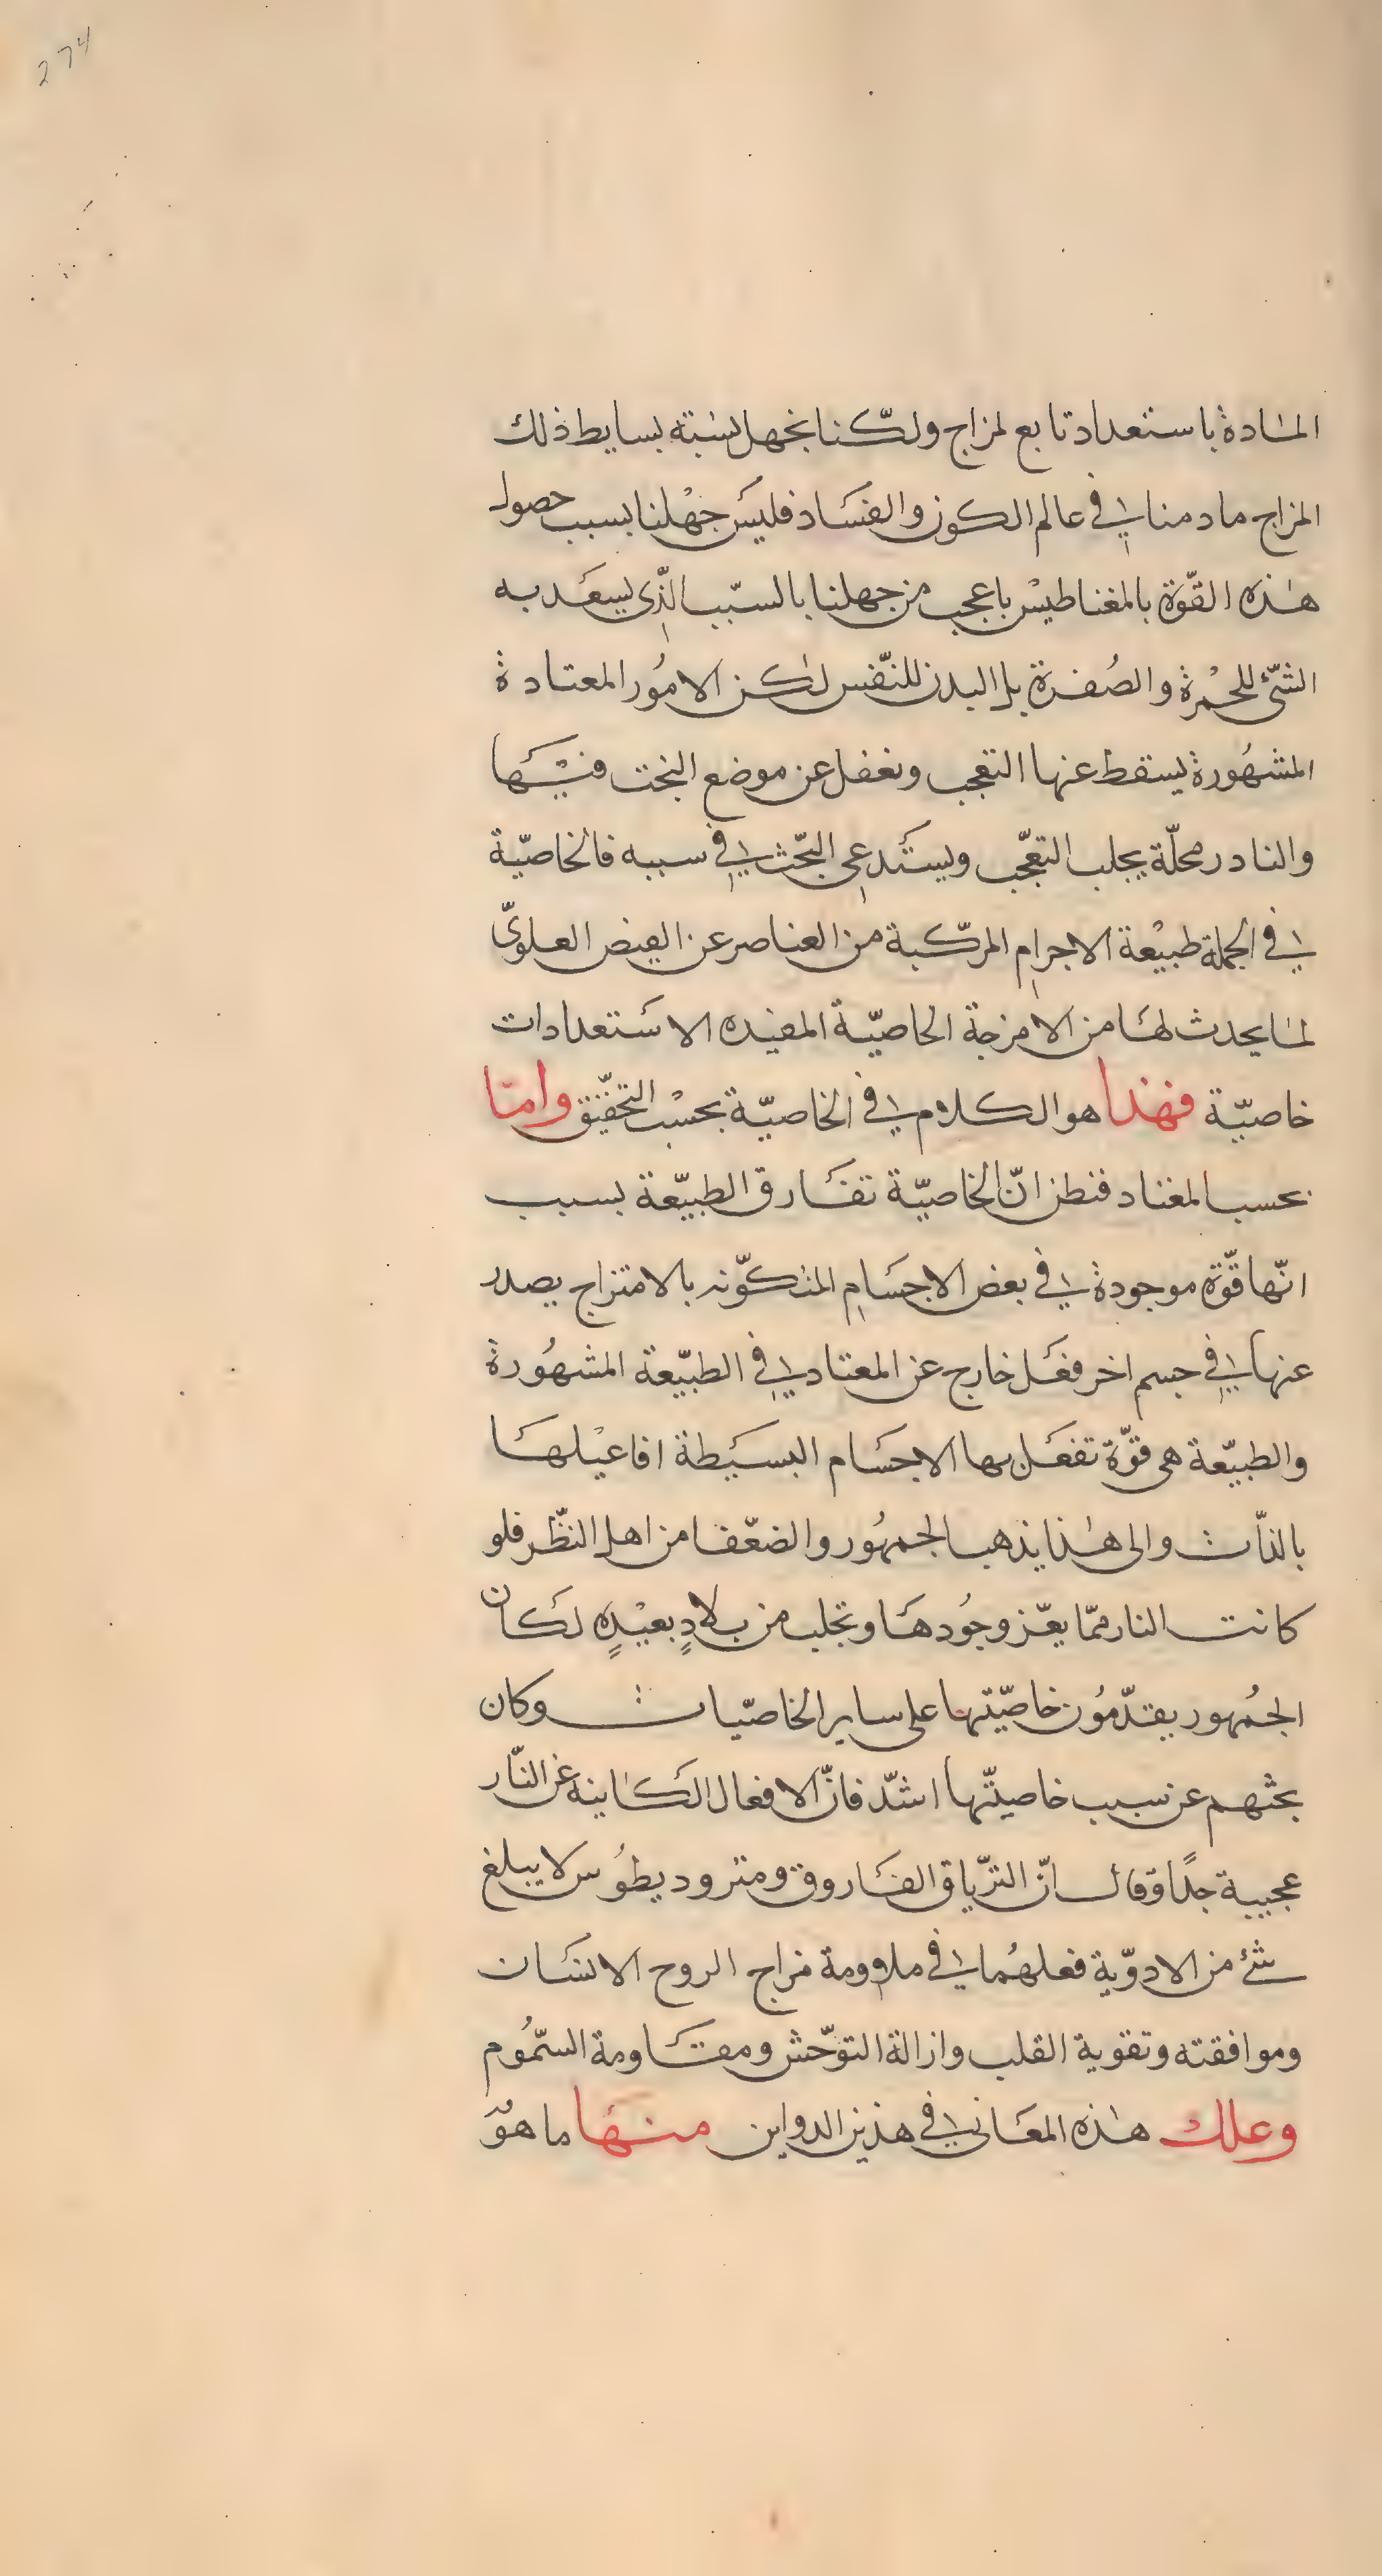 274
المادة باستعداد تابع لمزاج ولكّنا نجهل نسبته بسايط ذلك
المزاج ما دمنا في عالم الكون والفسَاد فليسَ جهْلنا بسبب حصول
هذه القوّة بالمغناطيسْ باعجب من جهلنا بالسبّب الذّى يسعَد به
الشئّ للحْمرة والصُفرة بل البدن للنّفس لكن الامُور المعتادة
المشهُورة يسقط عنها التعجب ونغفل عن موضع البخت فيْهَا
والنادر محلّة يجلب التعجّب ويستَدعى البحّث في سببه فالخاصيّة
في الجملة طبيْعة الاجرام المركّبة من العناصر عن الفيض العلوىّ
لما يحدث لهَا من الامزجة الخاصيّة المفيده الاسَتعدادات
خاصيّة فهذا هو الكلام في الخاصيّة بحسْب التحقّيق وامّا
بحسب المغناد فنظن انّ الخاصيّة تفَارق الطبيّعة بسبب
انّها قوّة موجودة في بعض الاجسَام المتكوّنه بالامتزاج يصدر
عنها في جسم اخر فعَل خارج عن المعتاد في الطبيّعة المشهُورة
والطبيّعة هى قوّة تفعَل بها الاجسَام البسَيطة افاعيْلهَا
بالذاّت والى هذا يذهب الجمهُور والضعّفا من اهل النظّر فلو
كانت النار ممّا يعّز وجُودهَا وتجلب من بلادٍ بعيْدٍه لكَان
الجُمهور يقدّمُون خاصيّتها على ساير الخاصيّات وكان
بحثهم عن سبب خاصيتّها اشدّ فانّ الافعال الكَاينه عن النّار
عجيبة جدًا وقال انّ الترّياق الفَاروق ومثروديطُوس لا يبلغ
شئ من الادوّية فعلهُما في ملاومة مزاج الروح الانسَان
وموافقته وتقوية القلب وازالة التوحّش ومقَاومة السمُّوم
وعلك هذه المعَانى في هذين الدواين منهَا ما هو